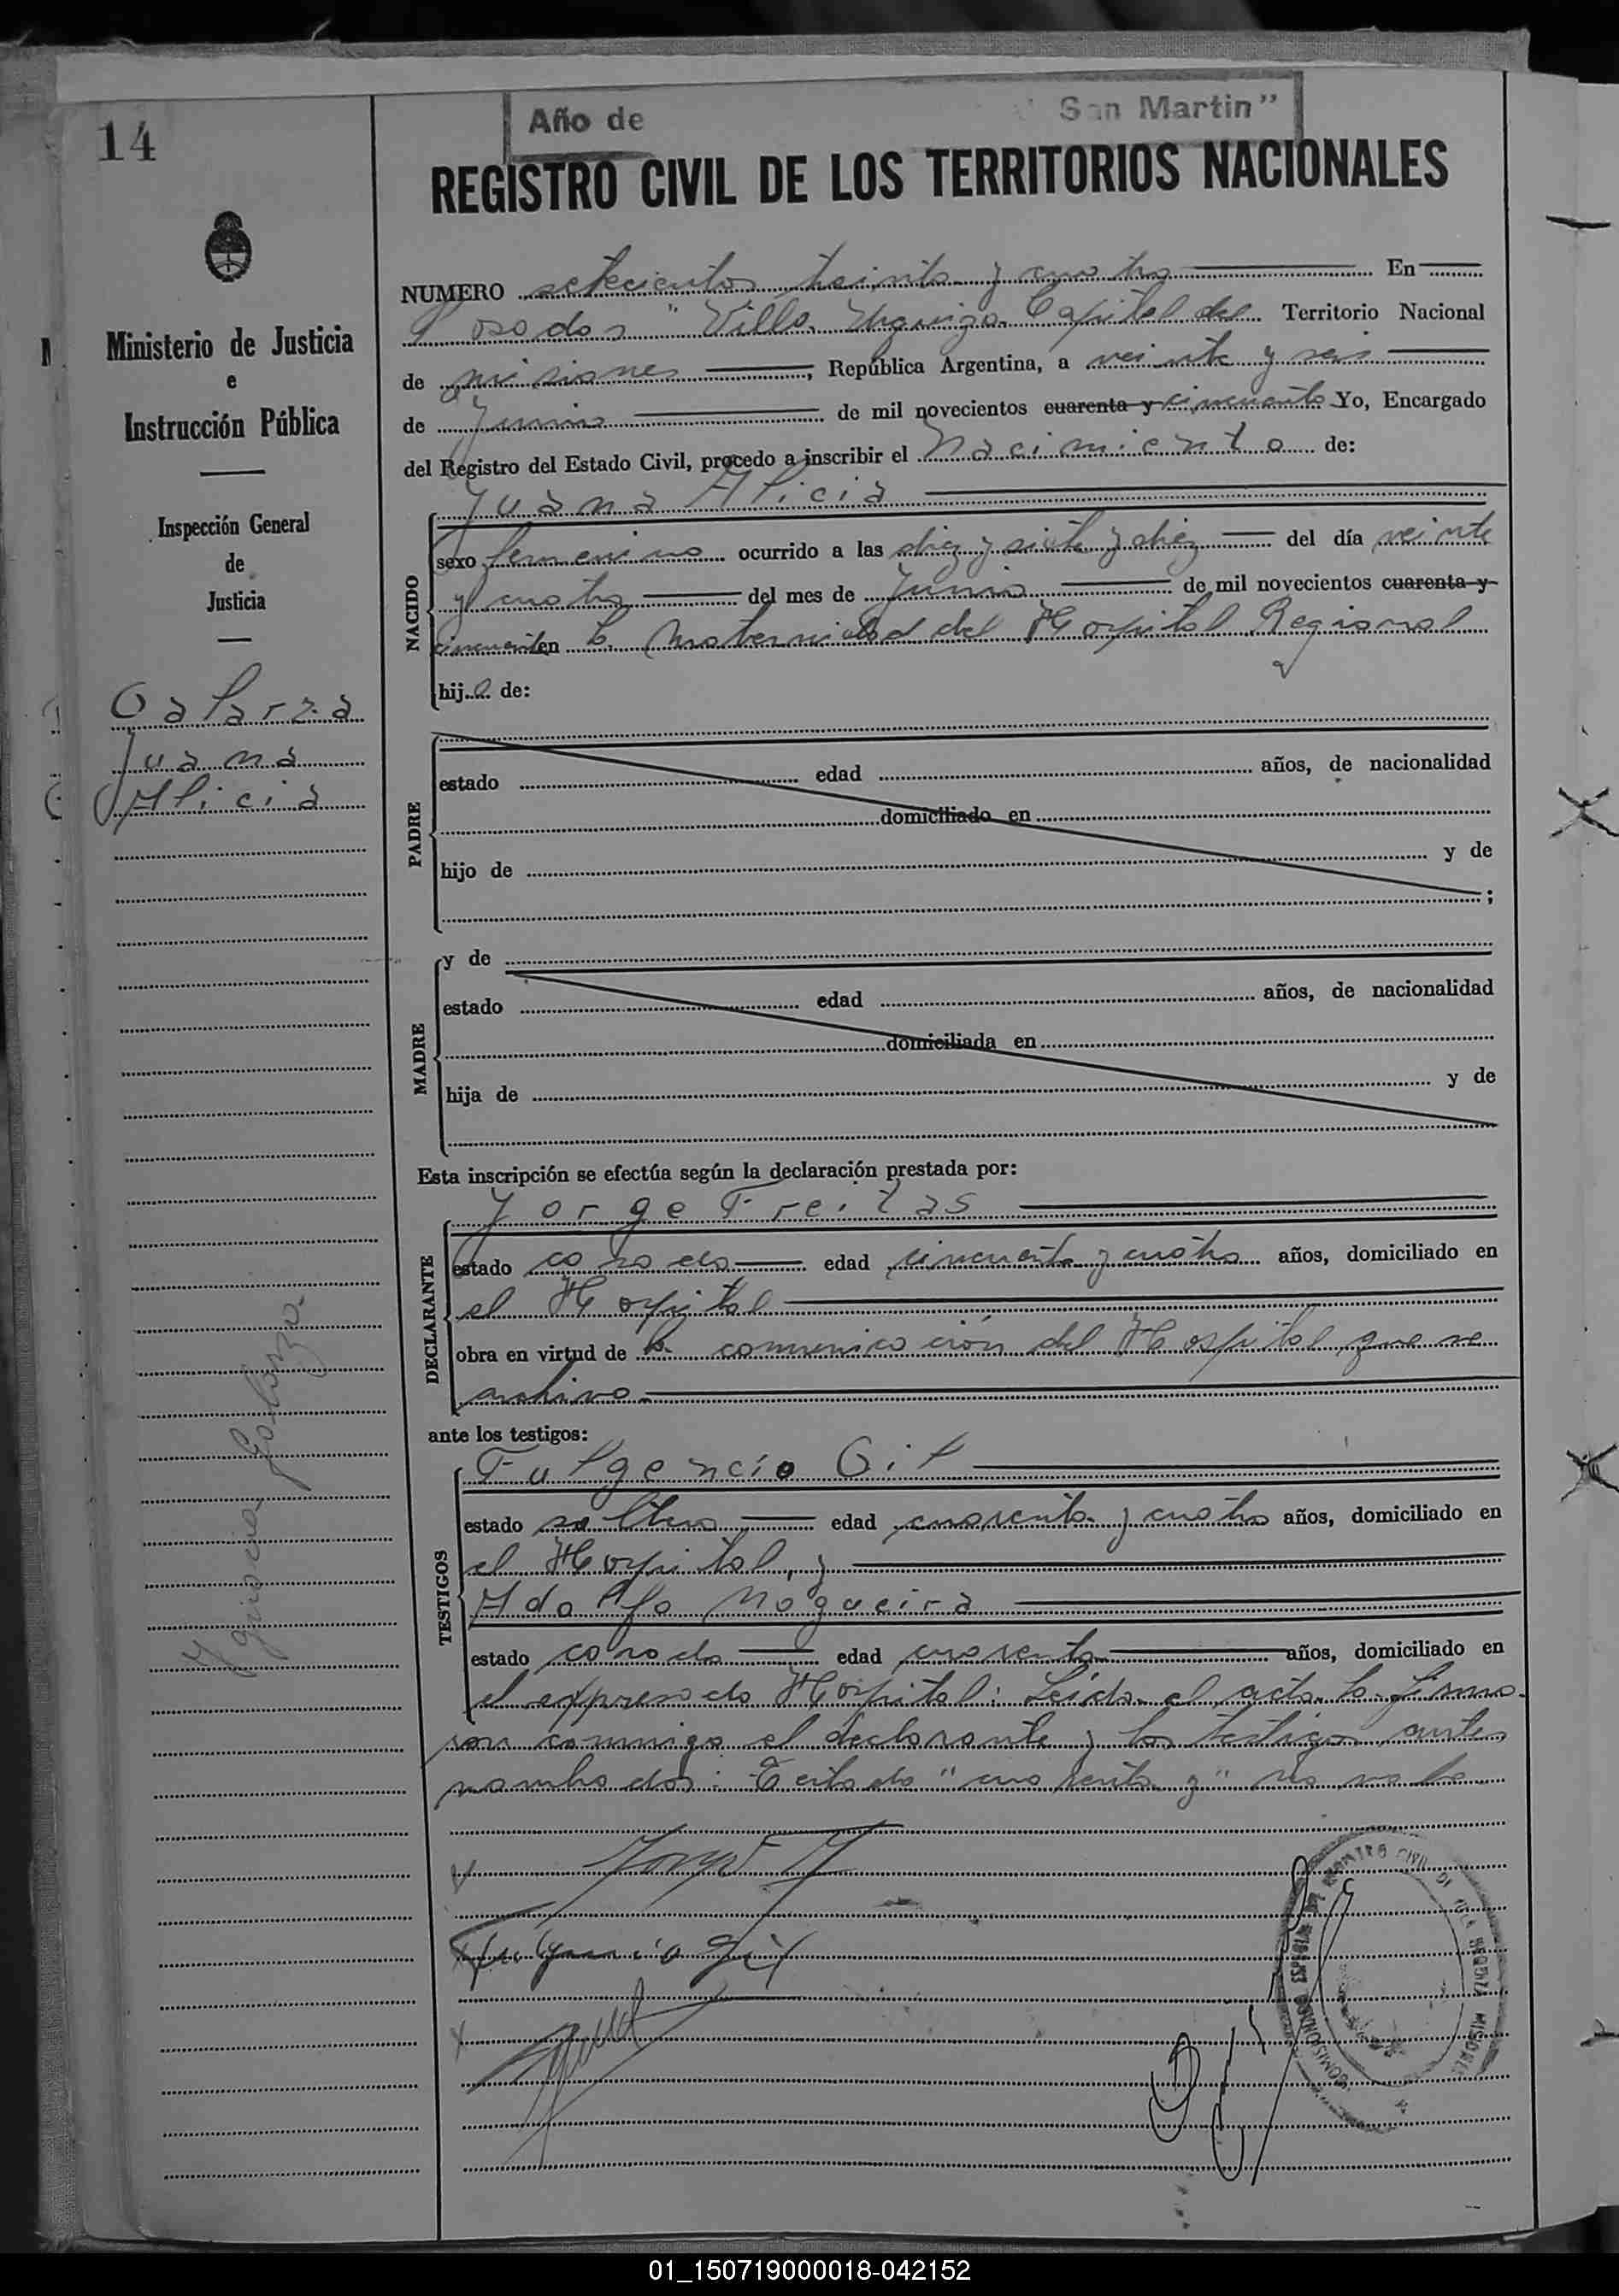 14
Año de San Martin"
REGISTRO CIVIL DE LOS TERRITORIOS NACIONALES
Ministerio de Justicia
e
Instrucción Pública
Inspección General
de
Justicia
Galarza
Juana
Alicia
Ignacia Galarza
NUMERO setecientos treinta y cuatro En
Posadas "Villa Urquiza Capital del Territorio Nacional
de Misiones, República Argentina, a veinte y seis
de Junio de mil novecientos cuarenta y cincuenta Yo, Encargado
del Registro del Estado Civil, procedo a inscribir el Nacimiento de:
NACIDO
Juana Alicia
sexo femenino ocurrido a las diez y siete y diez del día veinte
y cuatro del mes de Junio de mil novecientos cuarenta y
cincuenta en la Maternidad del Hospital Regional
hija de:
PADRE
estado edad años, de nacionalidad
domiciliado en
hijo de y de
;
MADRE
y de
estado edad años, de nacionalidad
domiciliada en
hija de y de
Esta inscripción se efectúa según la declaración prestada por:
DECLARANTE
Jorge Freitas
estado casado edad cincuenta y cuatro años, domiciliado en
el Hospital
obra en virtud de la comunicación del Hospital que se
archiva
ante los testigos:
TESTIGOS
Fulgencio Gil
estado soltero edad cuarenta y cuatro años, domiciliado en
el Hospital, y
Adolfo Nogueira
estado casado edad cuarenta años, domiciliado en
el expresado Hospital: Leída el acta la firma-
ron conmigo el declarante y los testigos antes
nombrados: Testado "cuarenta y" no vale
Fulgencio Gil
01_150719000018-042152